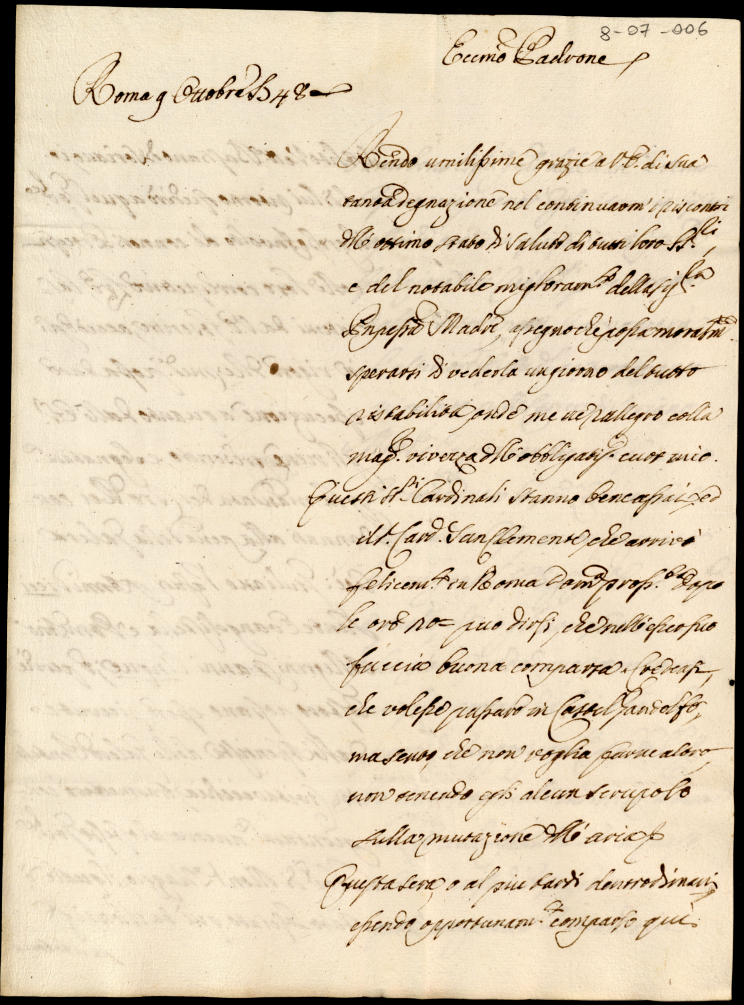 8-07-006
Eccmo Padrone
Roma 9 Ottobre 1748
Rendo umilissime grazie a V.E. di sua
tanta degnazione nel continuarmi i riscontri
dell'ottimo stato di salute di tutti loro SS.ri,
e del notabile miglioram.to della Sig.ra
Madre, a segno che possa moralm.te
sperarsi di vederla un giorno del tutto
ristabilita, onde me ne rallegro colla
magg.r vivezza dell'obbligatis.o cuor mio.
Questi SS.ri Cardinali stanno bene assai, ed
il S. Card. San Clemente, che arrivò
felicem.te in Roma Dom.ca pross.a dopo
le ore no= può dirsi, che nell'esser suo
faccia buona comparsa. Credeasi,
che volesse passare in Castel Gandolfo,
ma sento, che non voglia farne altro,
non avendo egli alcun scrupolo
sulla mutazione dell'aria.
Questa sera, o al più tardi dentro dimani,
essendo opportunam.te comparso quì